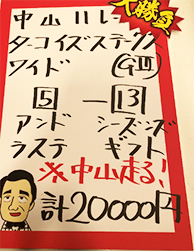 大勝負
中山11レース
ターコイズステークス
ワイド (GⅢ)
5 — 13
アンド シーズンズ
ラステ ギフト
※中山走る!
計20000円